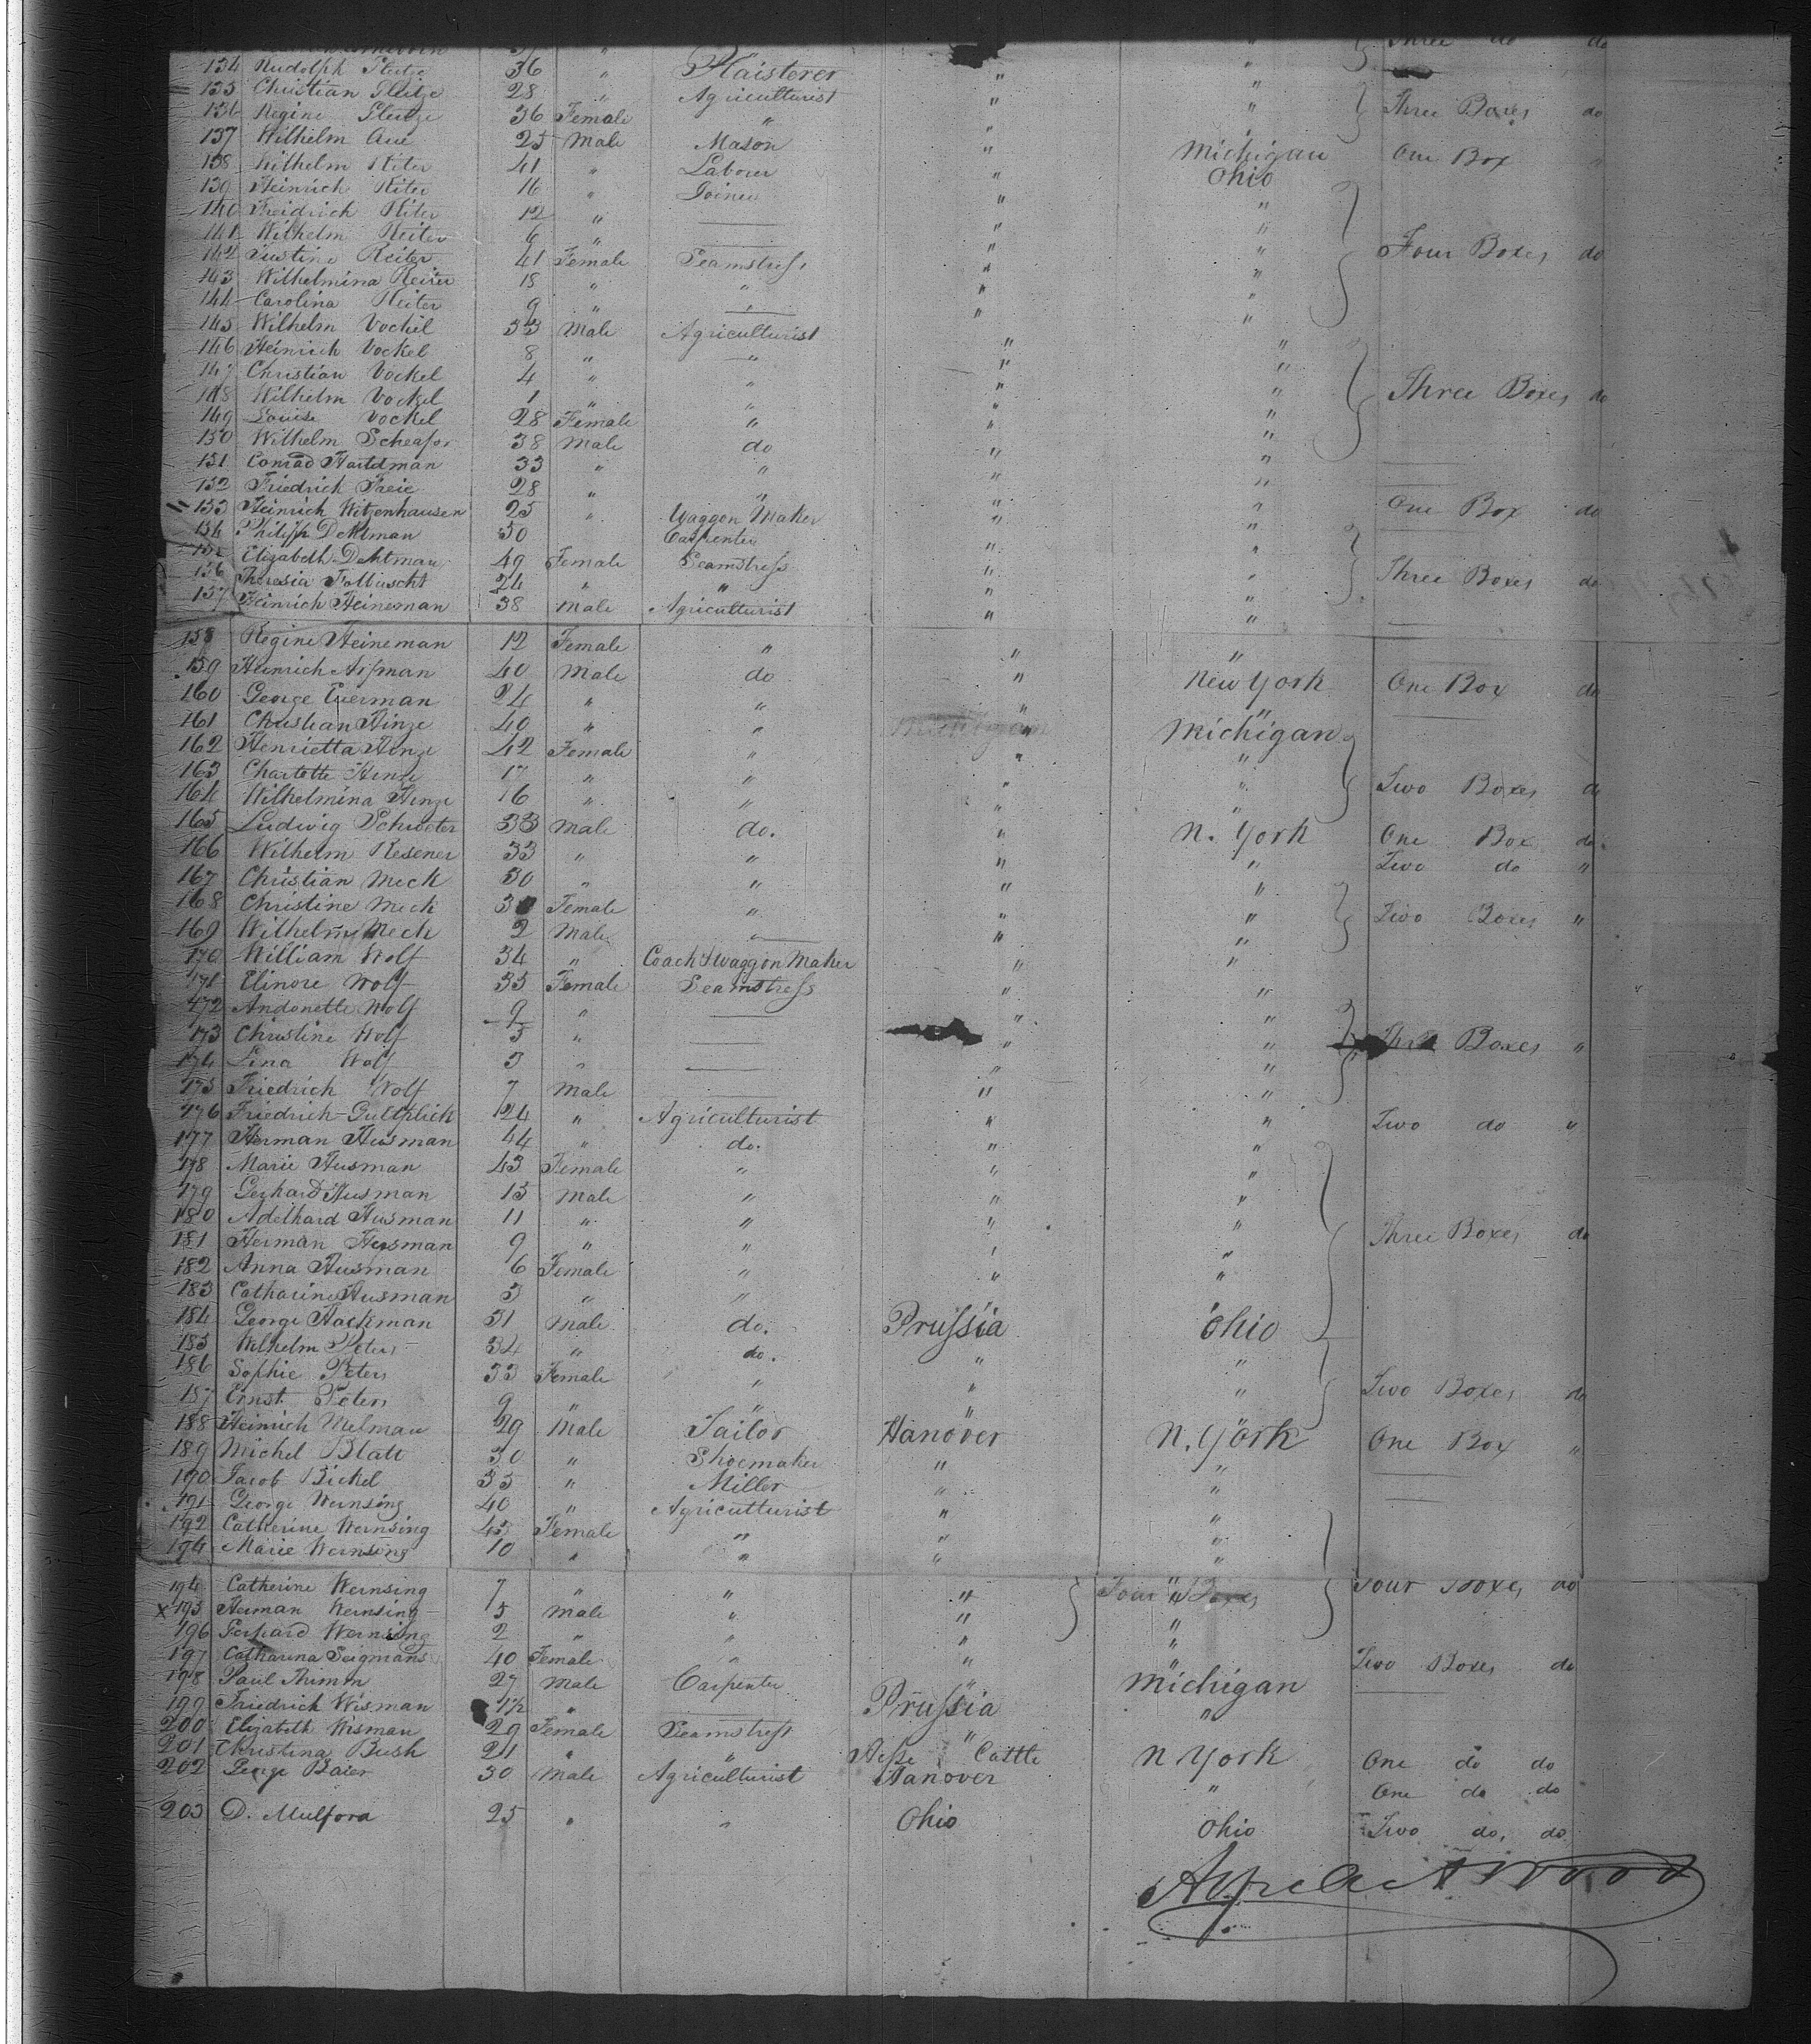 Three do do
134 Rudolph 36 " Plaisterer " "
135 Christian 28 " Agriculturist " "
136 Regine 36 Female " " " Three Boxes do
137 Wilhelm Aue 25 Male Mason " Michigan One Box "
138 Wilhelm Riter 41 " Laborer " Ohio
139 Heinrich Riter 16 " Joiner " "
140 Freidrich Riter 12 " — " "
141 Wilhelm Reiter 6 " — " "
142 Justine Reiter 41 Female Seamstress " " Four Boxes do
143 Wilhelmina Reiter 18 " " " "
144 Carolina Reiter 9 " " " "
145 Wilhelm Vockel 33 Male Agriculturist " "
146 Heinrich Vockel 8 " " " "
147 Christian Vockel 4 " " " "
148 Wilhelm Vockel 1 " " " " Three Boxes do
149 Louise Vockel 28 Female " " "
150 Wilhelm Scheafor 38 Male do " "
151 Conrad Hartdman 33 " " " " —
152 Friedrich 28 " " " "
153 Heinrich Witzenhausen 25 " Waggon Maker " " One Box do
154 Philipp Dehtman 50 Carpenter " "
155 Elizabeth Dehtman 49 Female Seamstress " " Three Boxes do
156 Theresia Folbuscht 24 " " " "
157 Heinrich Heineman 38 Male Agriculturist " " —
158 Regine Heineman 12 Female " " " —
159 Heinrich Assman 40 Male do " New York One Box do
160 George Everman 24 " " " " —
161 Christian Hinze 40 " " " Michigan
162 Henrietta Hinze 42 Female " " "
163 Charlotte Hinze 17 " " " " Two Boxes do
164 Wilhelmina Hinze 16 " " " "
165 Ludwig Schroter 33 Male do. " N. York One Box do.
166 Wilhelm Resener 33 " " " " Two do "
167 Christian Meck 30 " " " "
168 Christine Meck Female " " " Two Boxes "
169 Wilhelm Meck 2 Male " " "
170 William Wolf 34 " Coach & Waggon Maker " "
171 Elinore Wolf 33 Female Seamstress " "
172 Andonette Wolf 9 " — " "
173 Christine Wolf 5 " — " " Three Boxes "
174 Lina Wolf 3 " — " "
175 Friedrich Wolf 7 Male — " "
176 Friedrich 24 " Agriculturist " " Two do "
177 Herman Husman 44 " do. " "
178 Marie Husman 43 Female " " "
179 Gerhard Husman 13 Male " " "
180 Adelhard Husman 11 " " " " Three Boxes do
181 Herman Husman 9 " " " "
182 Anna Husman 6 Female " " "
183 Catharine Husman 3 " "
184 George Hackman 51 Male do. Prussia Ohio
185 Wilhelm Peters 34 " do. " "
186 Sophie Peters 33 Female " " " Two Boxes do
187 Ernst Peters 9 " " "
188 Heinrich Melman 29 Male Tailor Hanover N. York One Box "
189 Michel Blatt 30 " Shoemaker " " —
190 Jacob Bickel 35 " Miller " " —
191 George Wernsing 40 " Agriculturist " "
192 Catherine Wernsing 45 Female " " "
194 Marie Wernsing 10 " " " "
194 Catherine Wernsing 7 " " " Four Boxes Four Boxes do
x 195 Herman Wernsing 5 Male " " "
196 Gerhard Wernsing 2 " " " "
197 Catharina Seigmans 40 Female " " " Two Boxes do
198 Paul Thimon 27 Male Carpenter " Michigan —
199 Friedrich Wisman 1/2 " Prussia "
200 Elizabeth Wisman 29 Female Seamstress "
201 Christina Bush 21 " " Hesse Castle N York One do do
202 George Baier 30 Male Agriculturist Hanover " One do do
203 D. Mulford 25 " " Ohio Ohio Two do, do